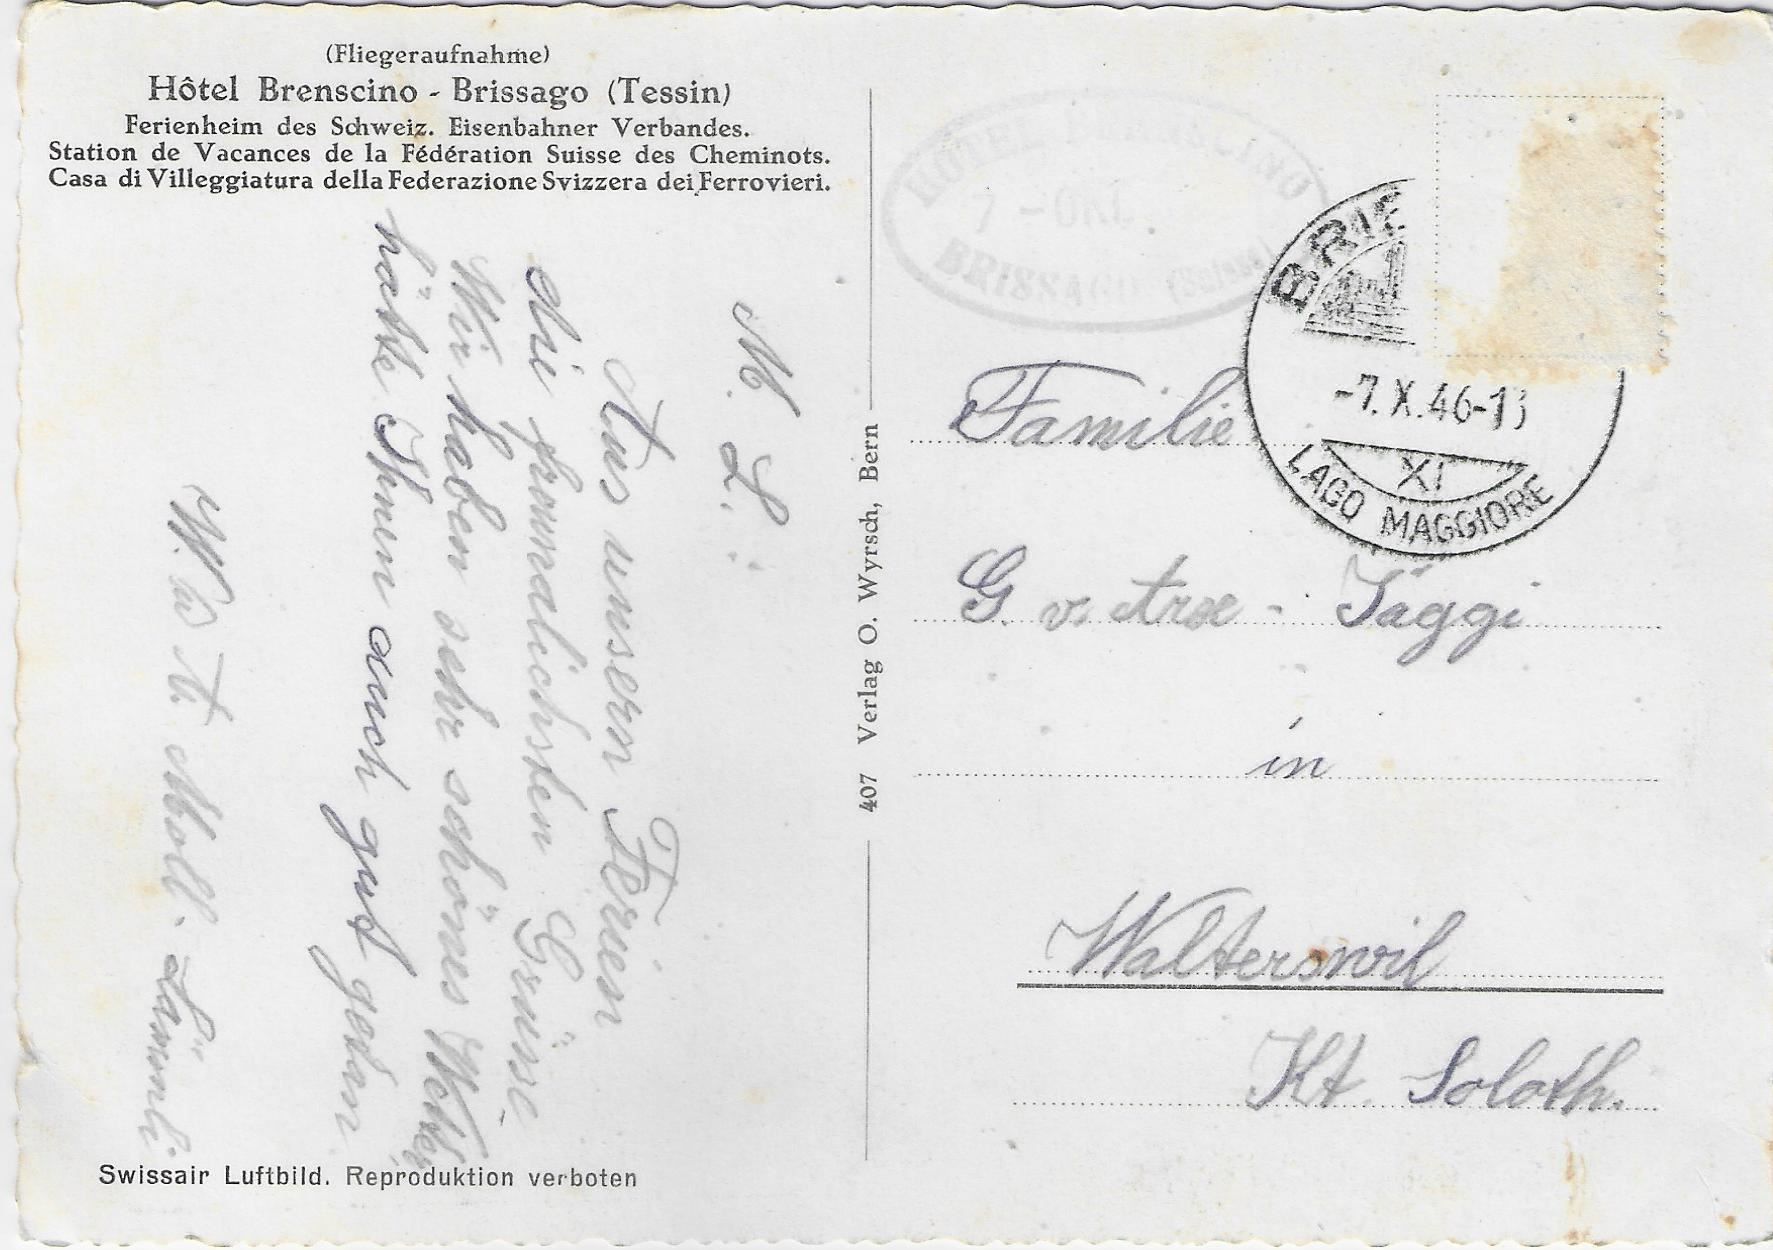 (Fliegeraufnahme)
Hôtel Brenscino - Brissago (Tessin)
Ferienheim des Schweiz. Eisenbahner Verbandes.
Station de Vacances de la Fédération Suisse des Cheminots.
Casa di Villeggiatura della Federazione Svizzera dei Ferrovieri.
M. L.
Aus unsern Ferien
die freundlichsten Grüsse
Wir haben sehr schönes Wetter
hätte Ihnen auch gut getan
W. u A. Moll-Lämmli.
Swissair Luftbild. Reproduktion verboten
407 Verlag O. Wyrsch, Bern
HOTEL BRENSCINO
7 - OKT.
BRISSAGO (Suisse)
BRIS
-7. X. 46-13
XI
LAGO MAGGIORE
Familie
G. v. Arx - Jäggi
in
Walterswil
Kt. Soloth.